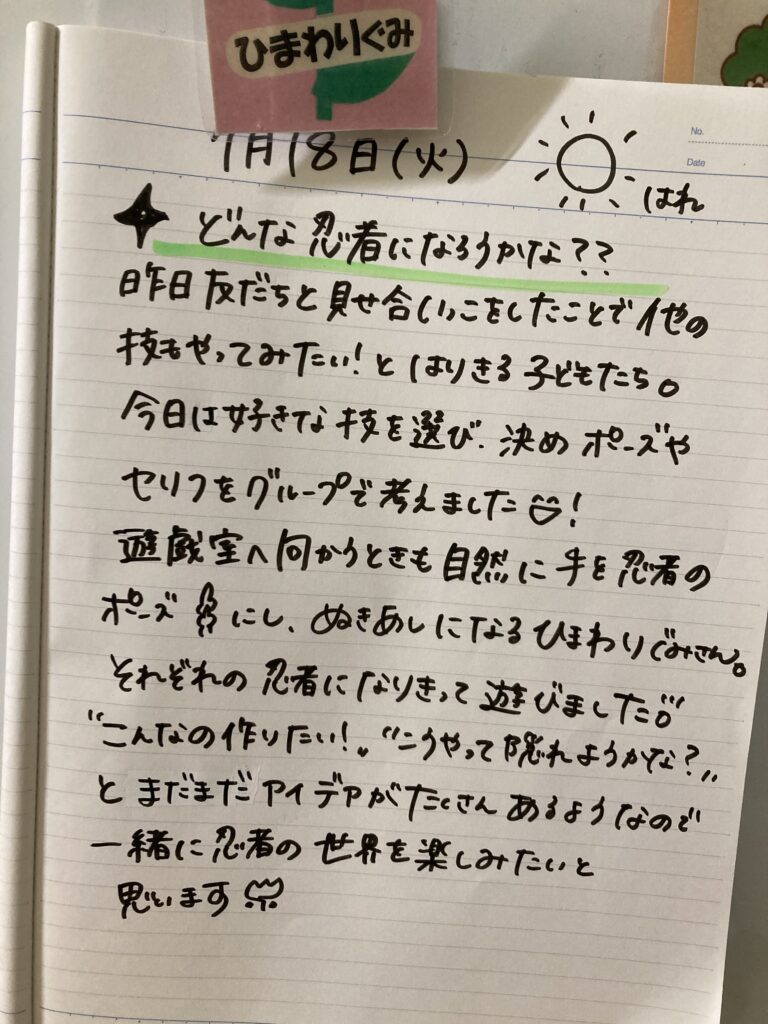 ひまわりぐみ
7月18日(火)
No.
Date
はれ
どんな忍者になろうかな??
昨日友だちと見せ合いっこをしたことで他の
技もやってみたい!とはりきる子どもたち。
今日は好きな技を選び、決めポーズや
セリフをグループで考えました!
遊戯室へ向かうときも自然に手を忍者の
ポーズにし、ぬきあしになるひまわりぐみさん。
それぞれの忍者になりきって遊びました
“こんなの作りたい!„“こうやって隠れようかな?„
とまだまだアイデアがたくさんあるようなので
一緒に忍者の世界を楽しみたいと
思います